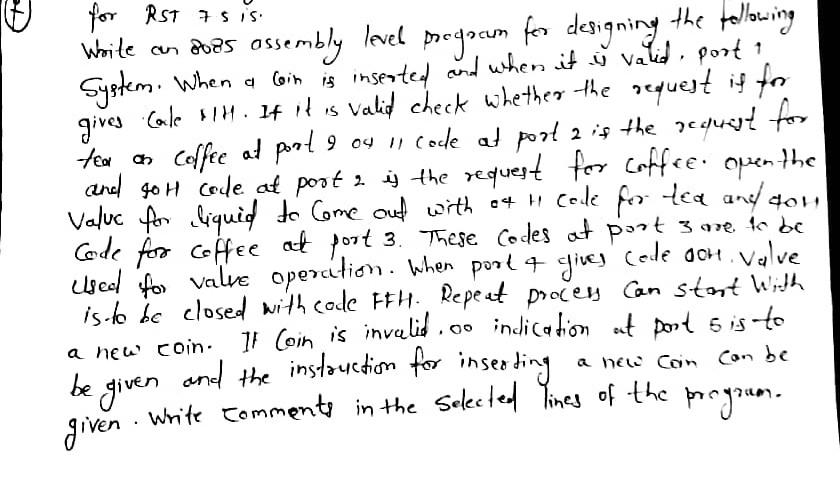 7
for RST 7 s is.
Write an 8085 assembly level program for designing the following
System. When a Coin is inserted and when it is valid, port 1
gives Code 11H. If it is valid check whether the request if for
tea or Coffee at port 2 04 11 Code at port 2 is the request for
and 40H Code at port 2 is the request for Coffee. open the
Valuc for liquid to Come out with 04 H Code for tea and 40H
Code for Coffee at port 3. These Codes at port 3 are to be
Used for valve operation. When port 4 gives Code 00H. Valve
is to be closed with code FFH. Repeat process Can start With
a new coin. If Coin is invalid, 00 indication at port 5 is to
be given and the instruction for inserting a new Coin Can be
given. Write Comments in the Selected lines of the program.